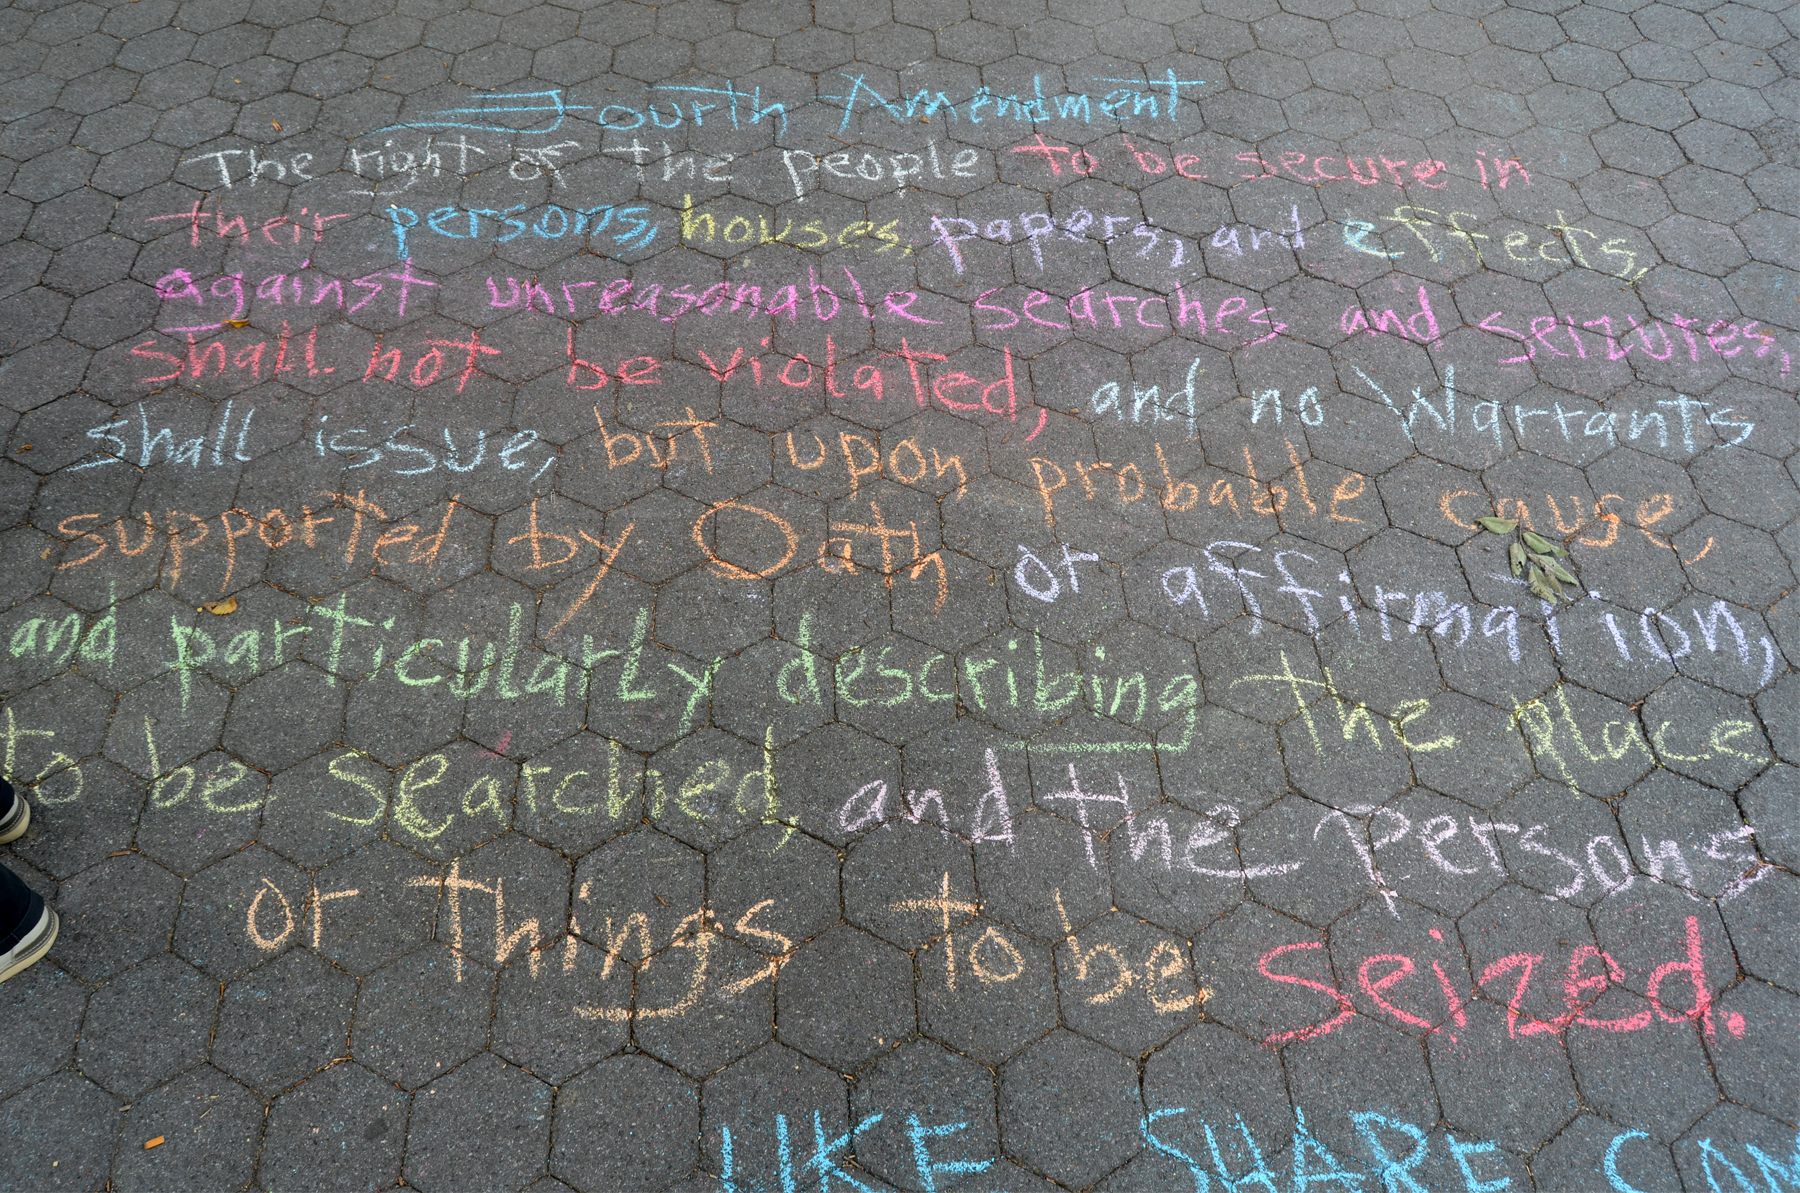 Fourth Amendment
The right of the people to be secure in
their persons, houses, papers, and effects,
against unreasonable searches and seizures,
shall not be violated, and no Warrants
shall issue, but upon probable cause,
supported by Oath or affirmation,
and particularly describing the place
to be searched, and the persons
or things to be seized.
LIKE SHARE